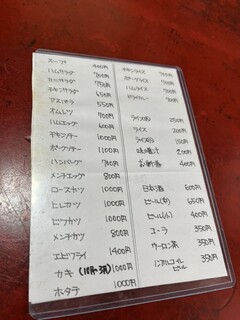 スープ 400円
ハムサラダ 700円
カニサラダ 750円
チキンサラダ 650円
アスパラ 550円
オムレツ 700円
ハムエッグ 600円
チキンソテー 1000円
ポークソテー 1100円
ハンバーグ 700円
メンチエッグ 800円
ロースカツ 1000円
ヒレカツ 1000円
ビフカツ 1000円
メンチカツ 800円
エビフライ 1400円
カキ (10月~3月) 1000円
ホタテ 1000円
チキンライス 700円
ポークライス 700円
ハムライス 700円
ドライカレー 700円
ライス(大) 250円
ライス 200円
ライス(小) 150円
味噌汁 200円
お新香 400円
日本酒 600円
ビール(大) 650円
ビール(小) 400円
コーラ 350円
ウーロン茶 350円
ノンアルコールビール 350円